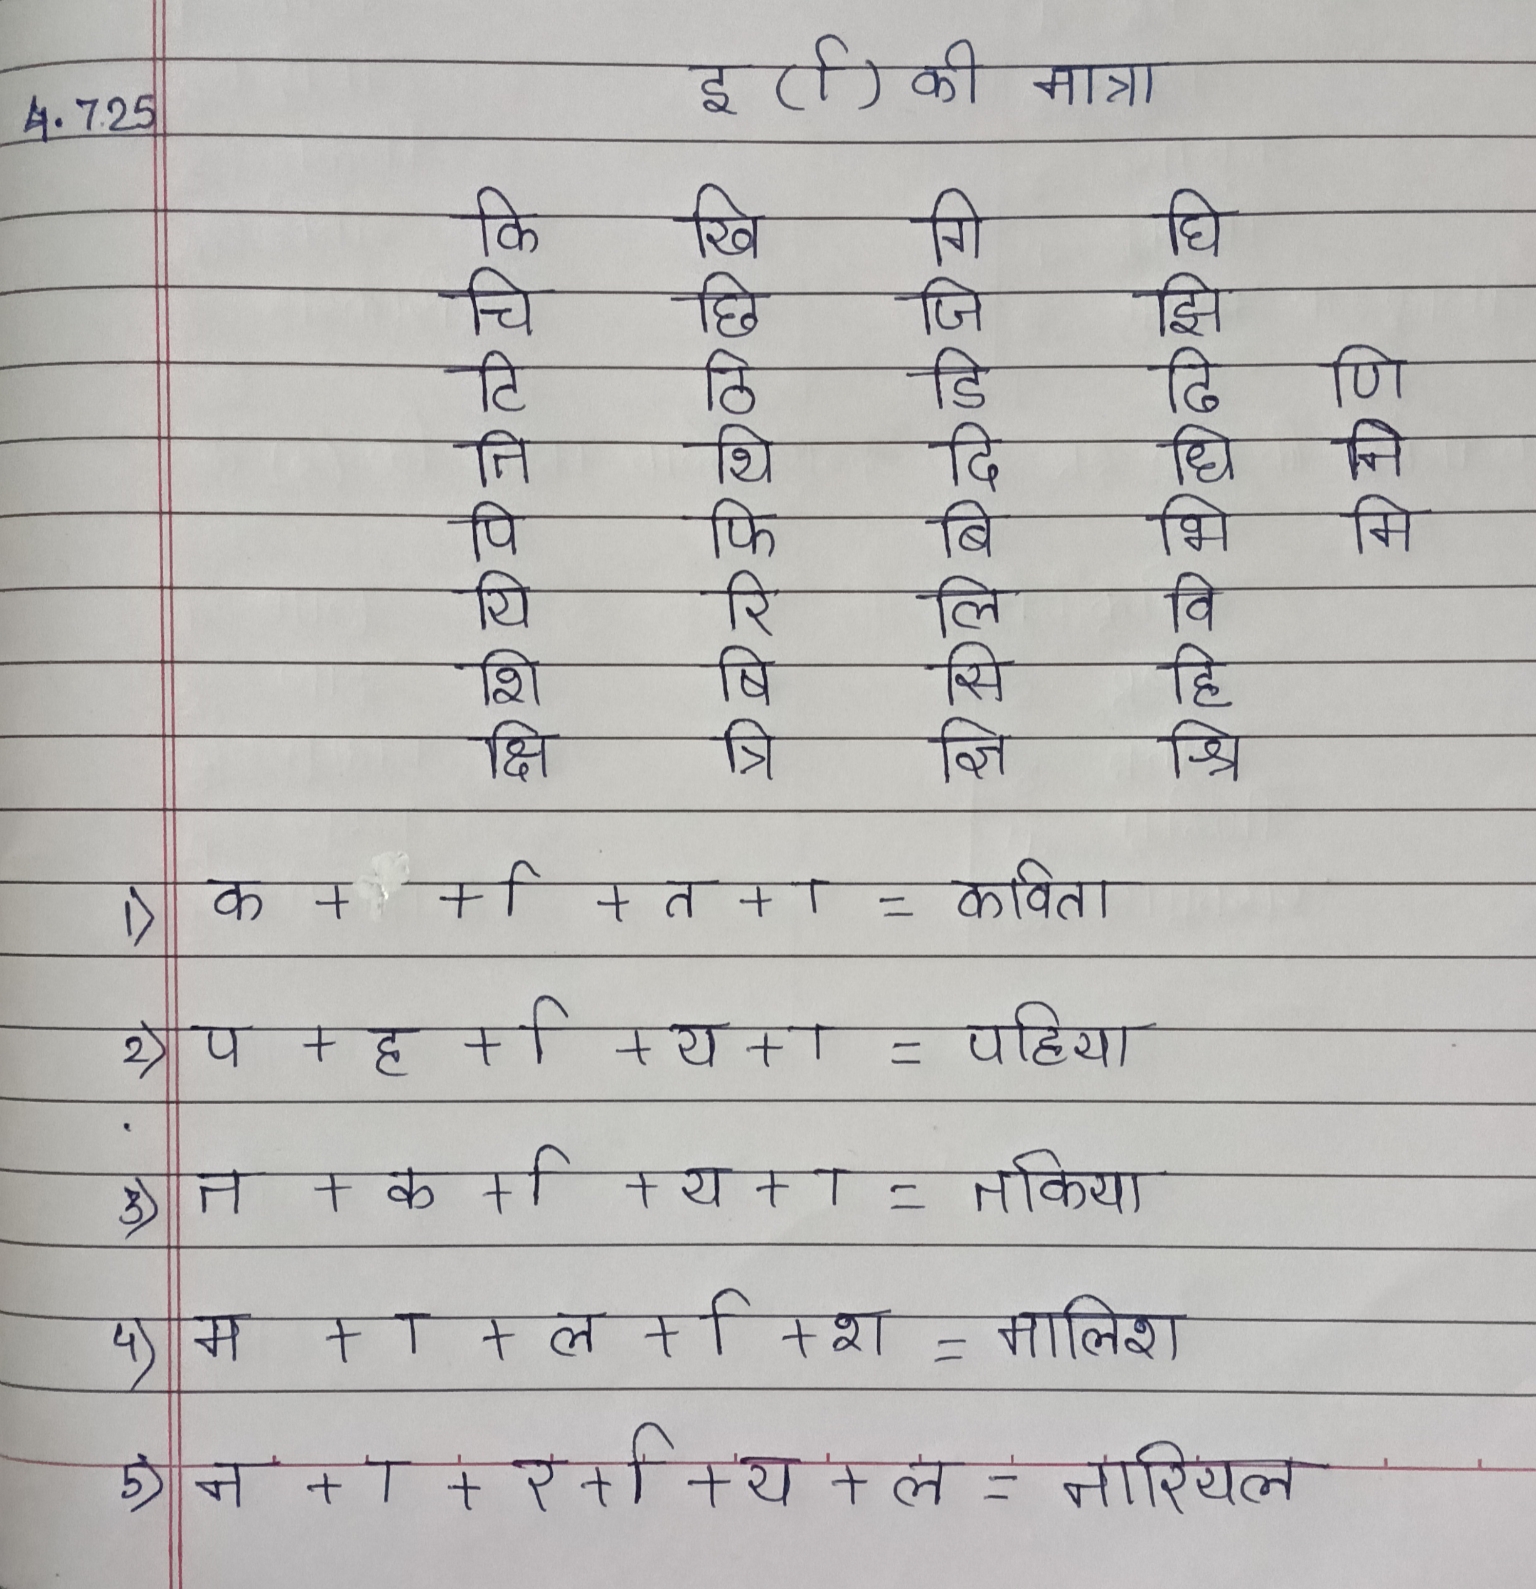 इ (ि) की मात्रा
4.7.25
कि खि गि घि
चि छि जि झि
टि ठि डि ढि णि
ति थि दि धि नि
पि फि बि भि मि
यि रि लि वि
शि षि सि हि
क्षि त्रि ज्ञि श्रि
1) क + + ि + त + ा = कविता
2) प + ह + ि + य + ा = पहिया
3) त + क + ि + य + ा = तकिया
4) म + ा + ल + ि + श = मालिश
5) न + ा + र + ि + य + ल = नारियल